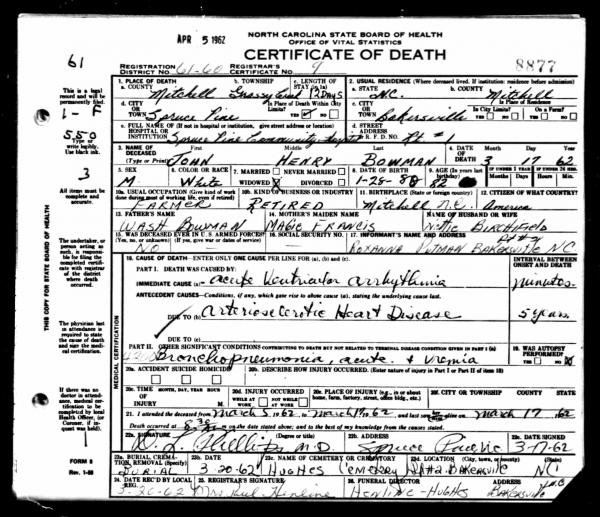 APR 5 1962
NORTH CAROLINA STATE BOARD OF HEALTH
OFFICE OF VITAL STATISTICS
CERTIFICATE OF DEATH
61
REGISTRATION DISTRICT NO. 61-60 REGISTRAR'S CERTIFICATE NO. 9 8877
1. PLACE OF DEATH a. COUNTY Mitchell b. TOWNSHIP Grassy Creek c. LENGTH OF STAY (in 1a) 12 Days
2. USUAL RESIDENCE (Where deceased lived. If institution: residence before admission) a. STATE N.C. b. COUNTY Mitchell
d. CITY OR TOWN Spruce Pine Is Place of Death Within City Limits? YES NO
c. CITY OR TOWN Bakersville Is Place of Residence In City Limits? On a Farm?
e. FULL NAME OF (If not in hospital or institution, give street address or location) HOSPITAL OR INSTITUTION Spruce Pine Community
d. STREET ADDRESS OR R.F.D. NO. Rt #1
3. NAME OF DECEASED (Type or Print) First JOHN Middle HENRY Last BOWMAN
4. DATE OF DEATH Month 3 Day 17 Year 62
5. SEX M 6. COLOR OR RACE White 7. MARRIED NEVER MARRIED WIDOWED DIVORCED
8. DATE OF BIRTH 1-25-80 9. AGE (In years last birthday) 82 IF UNDER 1 YEAR Months Days IF UNDER 24 HRS. Hours Min.
10a. USUAL OCCUPATION (Give kind of work done during most of working life, even if retired) FARMER
10b. KIND OF BUSINESS OR INDUSTRY RETIRED
11. BIRTHPLACE (State or foreign country) Mitchell N.C.
12. CITIZEN OF WHAT COUNTRY? America
13. FATHER'S NAME WASH BOWMAN
14. MOTHER'S MAIDEN NAME MAGIE FRANCIS
NAME OF HUSBAND OR WIFE BIRCHFIELD
15. WAS DECEASED EVER IN U.S. ARMED FORCES? (Yes, no, or unknown) (If yes, give war or dates of service) NO
16. SOCIAL SECURITY NO.
17. INFORMANT'S NAME AND ADDRESS ROXANNA PUTMAN BAKERSVILLE N.C.
18. CAUSE OF DEATH—ENTER ONLY ONE CAUSE PER LINE FOR (a), (b), and (c).
INTERVAL BETWEEN ONSET AND DEATH
PART I. DEATH WAS CAUSED BY:
IMMEDIATE CAUSE (a) acute Ventricular arrhythmia minutes
ANTECEDENT CAUSES—Conditions, if any, which gave rise to above cause (a), stating the underlying cause last.
DUE TO (b) Arteriosclerotic Heart Disease 5 years
DUE TO (c)
PART II. OTHER SIGNIFICANT CONDITIONS CONTRIBUTING TO DEATH BUT NOT RELATED TO TERMINAL DISEASE CONDITION GIVEN IN PART I (a)
Bronchopneumonia, acute + Uremia
19. WAS AUTOPSY PERFORMED? YES NO
20a. ACCIDENT SUICIDE HOMICIDE 20b. DESCRIBE HOW INJURY OCCURRED. (Enter nature of injury in Part I or Part II of item 18)
20c. TIME OF INJURY MONTH, DAY, YEAR HOUR M. 20d. INJURY OCCURRED WHILE AT WORK NOT WHILE AT WORK
20e. PLACE OF INJURY (e.g., in or about home, farm, factory, street, office bldg., etc.)
20f. CITY OR TOWNSHIP COUNTY STATE
21. I attended the deceased from March 5, 1962 to March 17, 62 and last saw alive on March 17 62
Death occurred at on the date stated above; and to the best of my knowledge from the causes stated.
22a. SIGNATURE (Degree or title) M.D 22b. ADDRESS Spruce Pine NC 22c. DATE SIGNED 3-17-62
23a. BURIAL, CREMATION, REMOVAL (Specify) BURIAL 23b. DATE 3-20-62 23c. NAME OF CEMETERY OR CREMATORY HUGHES CEMETERY
23d. LOCATION (City, town, or county) (State) Rt #2 BAKERSVILLE NC
24. DATE REC'D BY LOCAL REG. 3-26-62 25. REGISTRAR'S SIGNATURE
26. FUNERAL DIRECTOR HENLINE-HUGHES ADDRESS BAKERSVILLE N.C.
This is a legal record and will be permanently filed.
1-F
550
Type or write legibly. Use black ink.
3
All items must be complete and accurate.
The undertaker, or person acting as such, is responsible for filing the completed certificate with registrar of the district where death occurred.
The physician last in attendance is required to state the cause of death and sign the medical certification.
If there was no doctor in attendance, medical certification to be completed by local Health Officer, (or Coroner, if inquest was held).
FORM 8
Rev. 1-56
THIS COPY FOR STATE BOARD OF HEALTH
MEDICAL CERTIFICATION